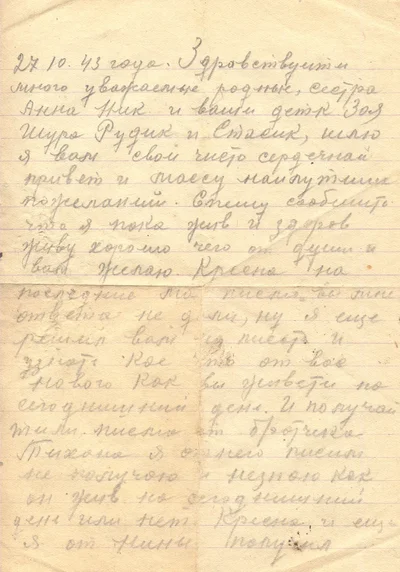 27.10.43 года. Здравствуити
много уважаемые родные, сестра
Анна Ник и ваши детк Зоя
Шура Рудик и Стасик, шлю
я вам свой чисто сердечнай
привет и массу наилутших
пожеланий. Спешу сообщить
что я пока жив и здоров
живу хорошо чего от души и
вам желаю. Ксена на
последние мои письма вы мне
ответа не дали, ну я еще
решил вам написать и
узнать как что от вас
нового как вы живети на
сегоднишний день. И получай
тили письма от братика
Тихона я от него писем
не получаю и незнаю как
он жив на сегоднишний
день или нет Ксена и еще
я от Нины получил